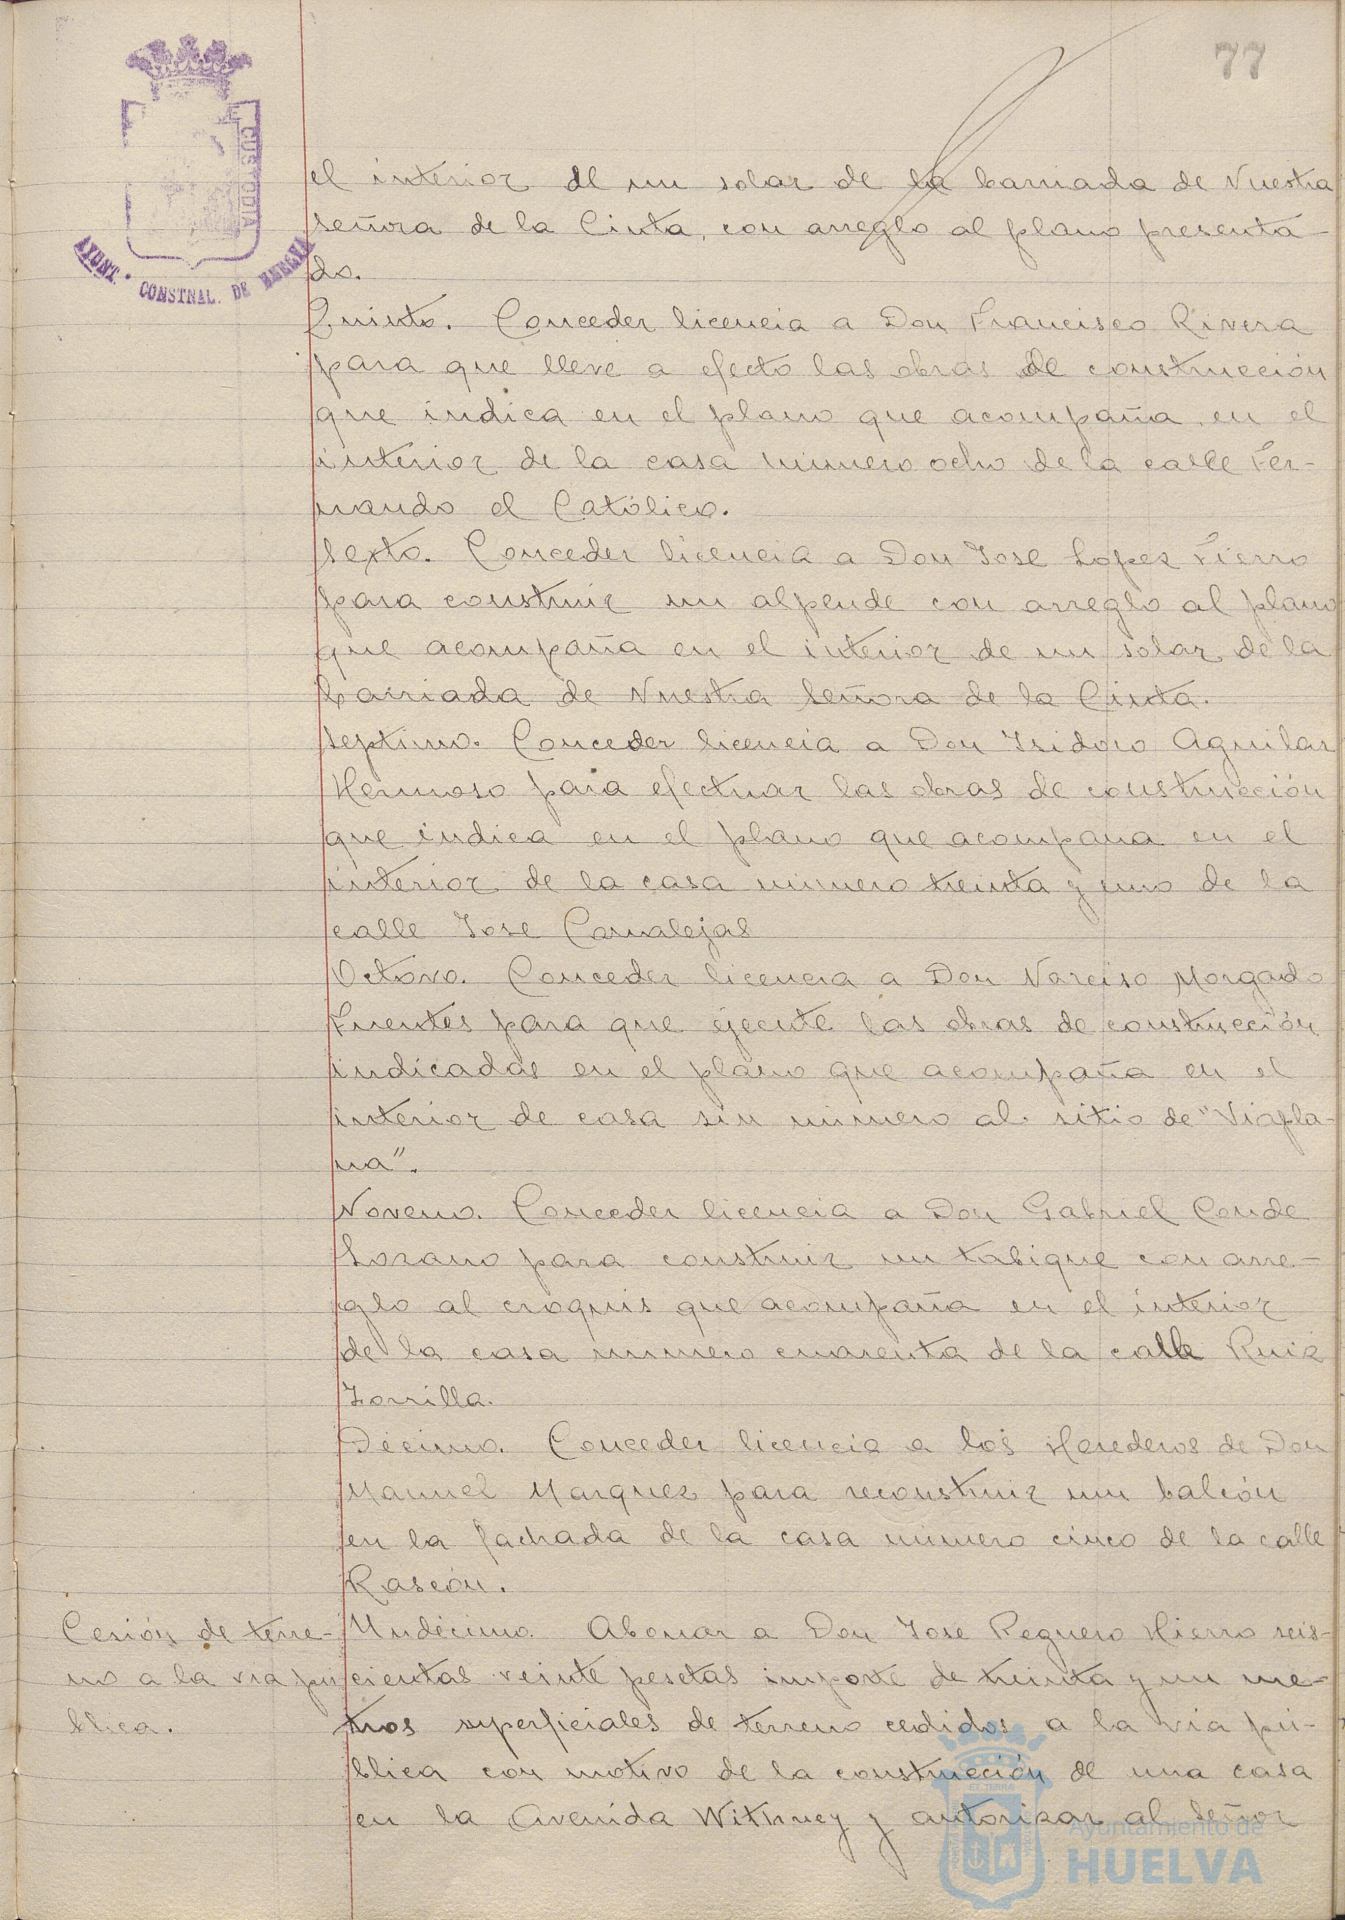 77
CUSTODIA
AYUNT. CONSTNAL. DE HUELVA
el interior de un solar de la barriada de Nuestra
Señora de la Cinta, con arreglo al plano presenta-
do.
Quinto. Conceder licencia a Don Francisco Rivera
para que lleve a efecto las obras de construcción
que indica en el plano que acompaña en el
interior de la casa número ocho de la calle Fer-
nando el Católico.
Sexto. Conceder licencia a Don Jose Lopez Fierro
para construir un alpende con arreglo al plano
que acompaña en el interior de un solar de la
barriada de Nuestra Señora de la Cinta.
Septimo. Conceder licencia a Don Isidoro Aguilar
Hermoso para efectuar las obras de construcción
que indica en el plano que acompaña en el
interior de la casa número treinta y uno de la
calle Jose Canalejas
Octavo. Conceder licencia a Don Narciso Morgado
Fuentes para que ejecute las obras de construcción
indicadas en el plano que acompaña en el
interior de casa sin número al sitio de "Viapla-
na".
Noveno. Conceder licencia a Don Gabriel Conde
Lozano para construir un tabique con arre-
glo al croquis que acompaña en el interior
de la casa número cuarenta de la calle Ruiz
Zorrilla.
Décimo. Conceder licencia a los Herederos de Don
Manuel Marquez para reconstruir un balcón
en la fachada de la casa número cinco de la calle
Rascón.
Cesión de terre-
no a la via pú
blica.
Undécimo. Abonar a Don Jose Reguero Hierro seis-
cientas veinte pesetas importe de treinta y un me-
tros superficiales de terreno cedidos a la via pú-
blica con motivo de la construcción de una casa
en la Avenida Withney y autorizar al Señor
Ayuntamiento de
HUELVA